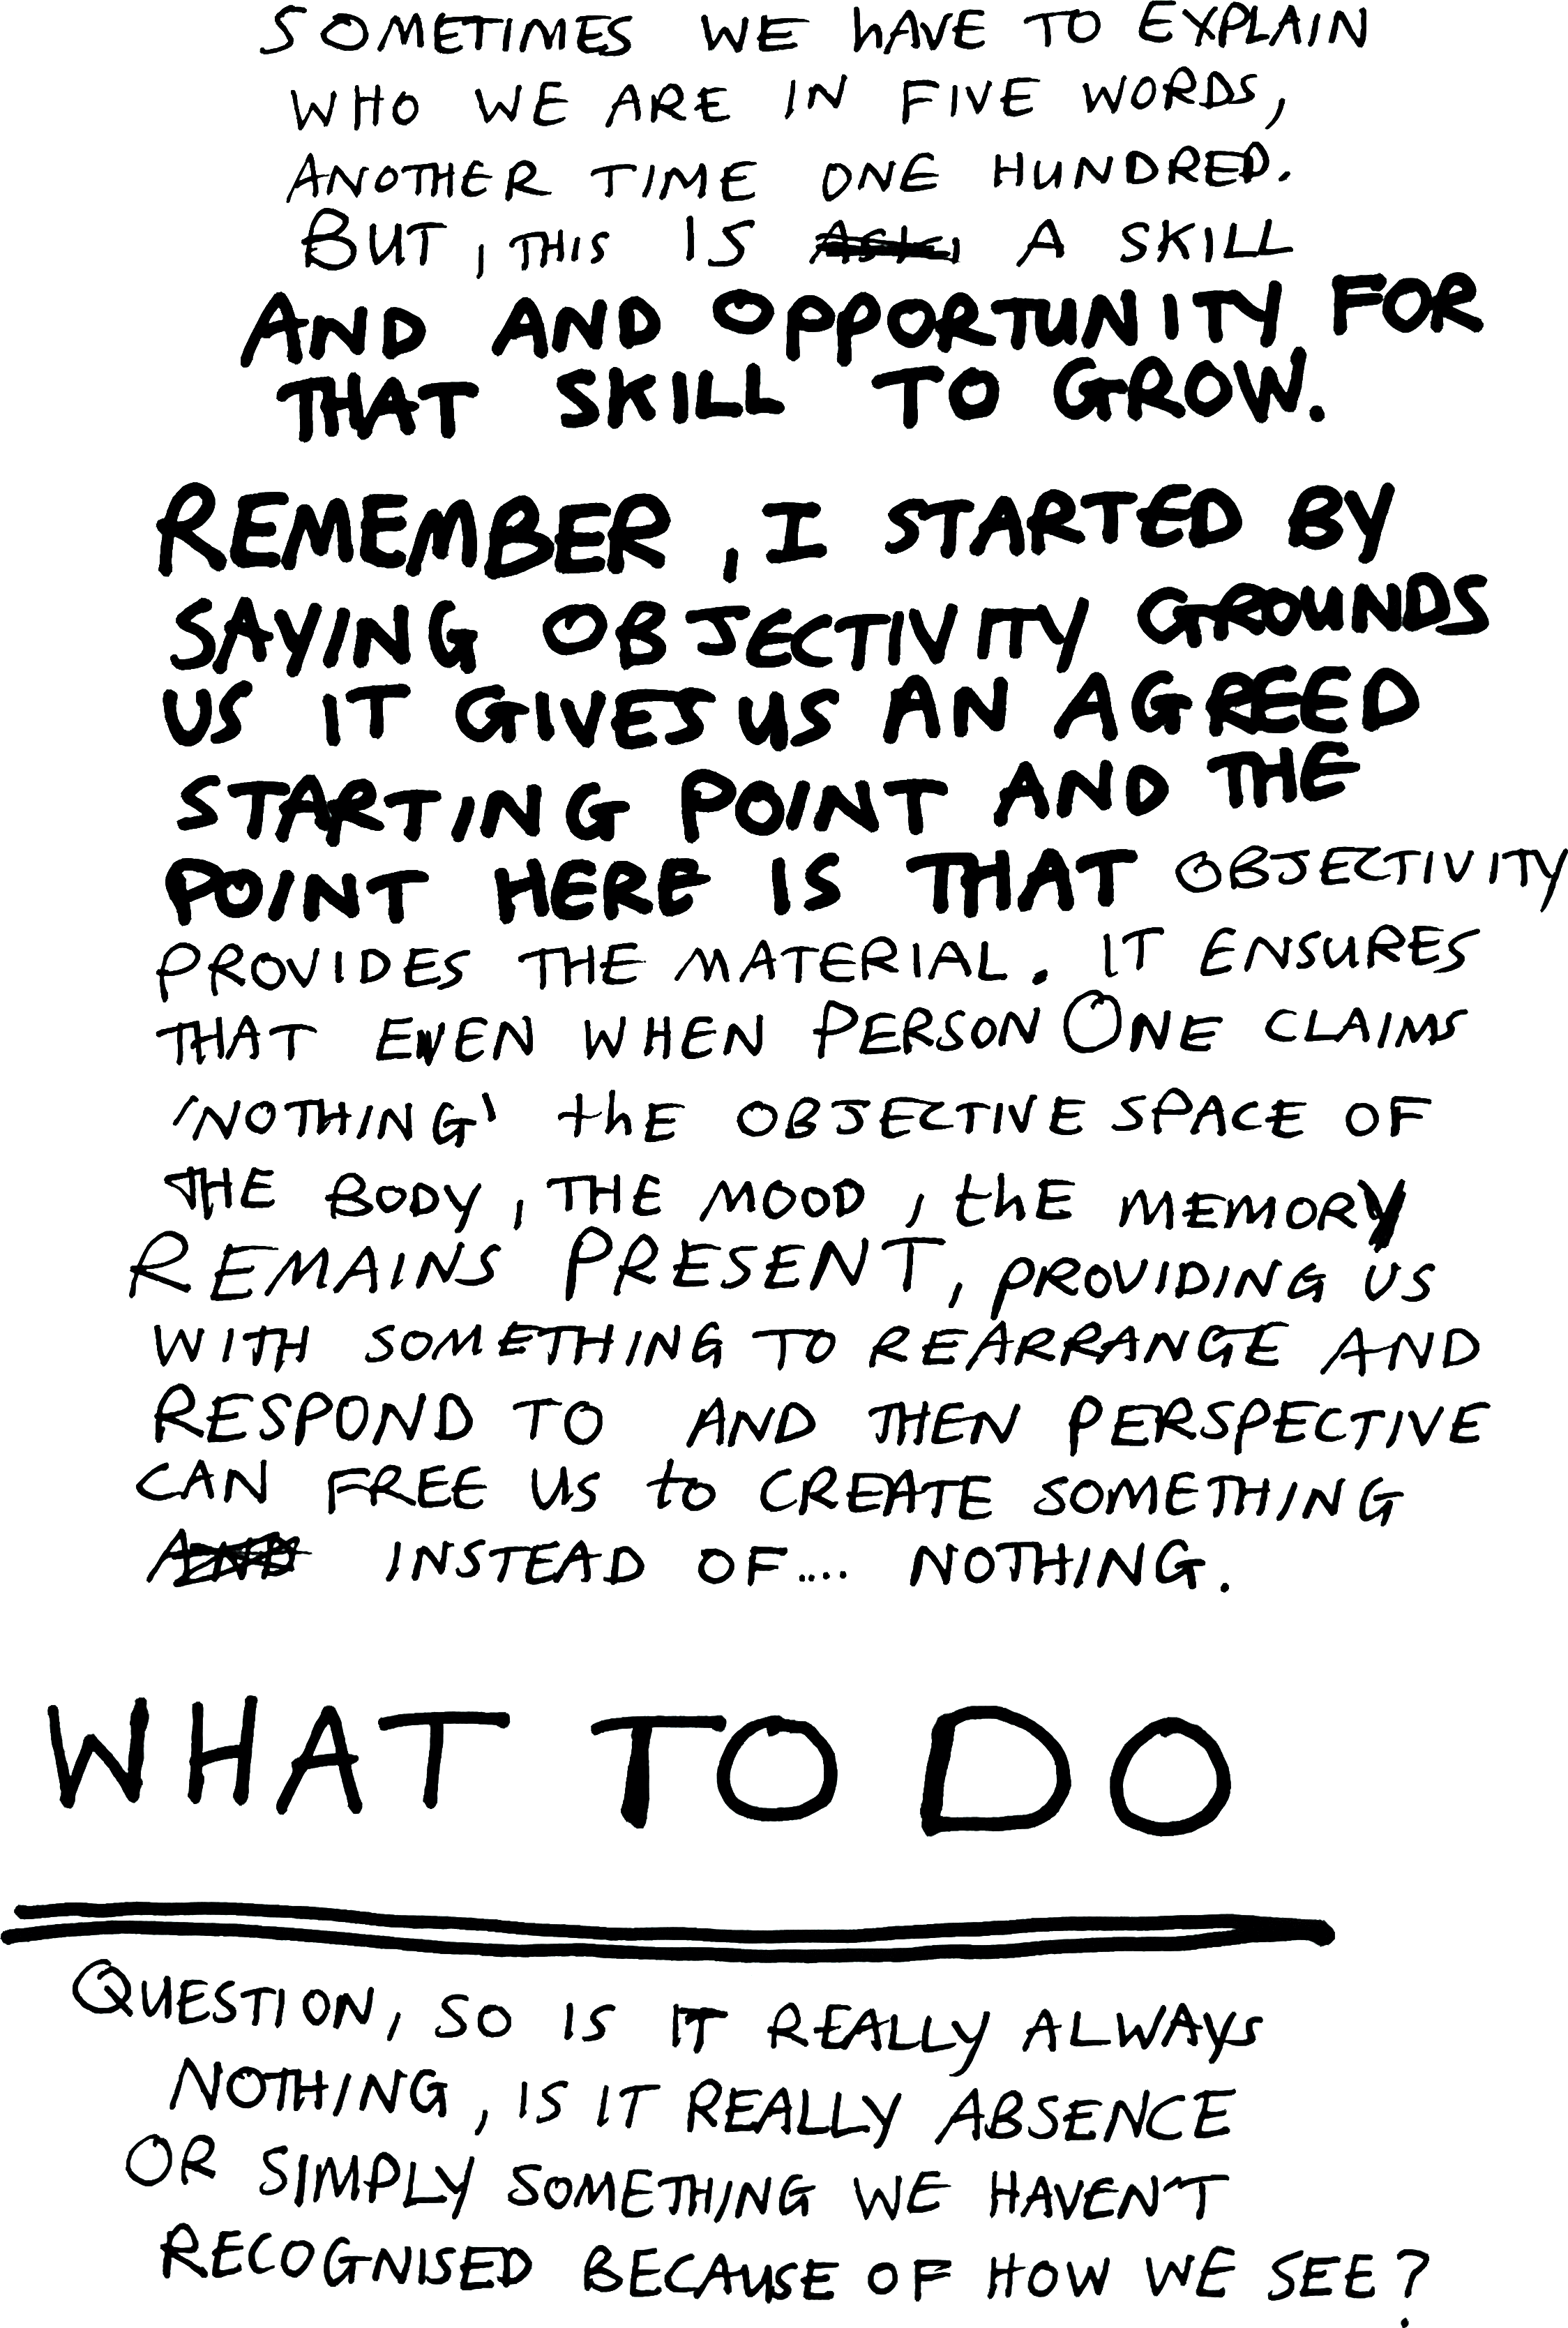 SOMETIMES WE hAVE TO EXPLAIN
WHO WE ARE IN FIVE WORDS,
ANOTHER TIME ONE HUNDRED.
BUT, THIS IS A SKILL
AND AND OPPORTUNITY FOR
THAT SKILL TO GROW.
REMEMBER, I STARTED BY
SAYING OBJECTIVITY GROUNDS
US IT GIVES US AN AGREED
STARTING POINT AND THE
POINT HERE IS THAT OBJECTIVITY
PROVIDES THE MATERIAL. IT ENSURES
THAT EVEN WHEN PERSON ONE CLAIMS
'NOTHING' thE OBJECTIVE SPACE OF
THE BODY, THE MOOD, thE MEMORY
REMAINS PRESENT, PROVIDING US
WITH SOMETHING TO REARRANGE AND
RESPOND TO AND THEN PERSPECTIVE
CAN FREE US to CREATE SOMETHING
INSTEAD OF.... NOTHING.
WHAT TO DO
QUESTION, SO IS IT REALLY ALWAYS
NOTHING, IS IT REALLY ABSENCE
OR SIMPLY SOMETHING WE HAVEN'T
RECOGNISED BECAUSE OF HOW WE SEE?